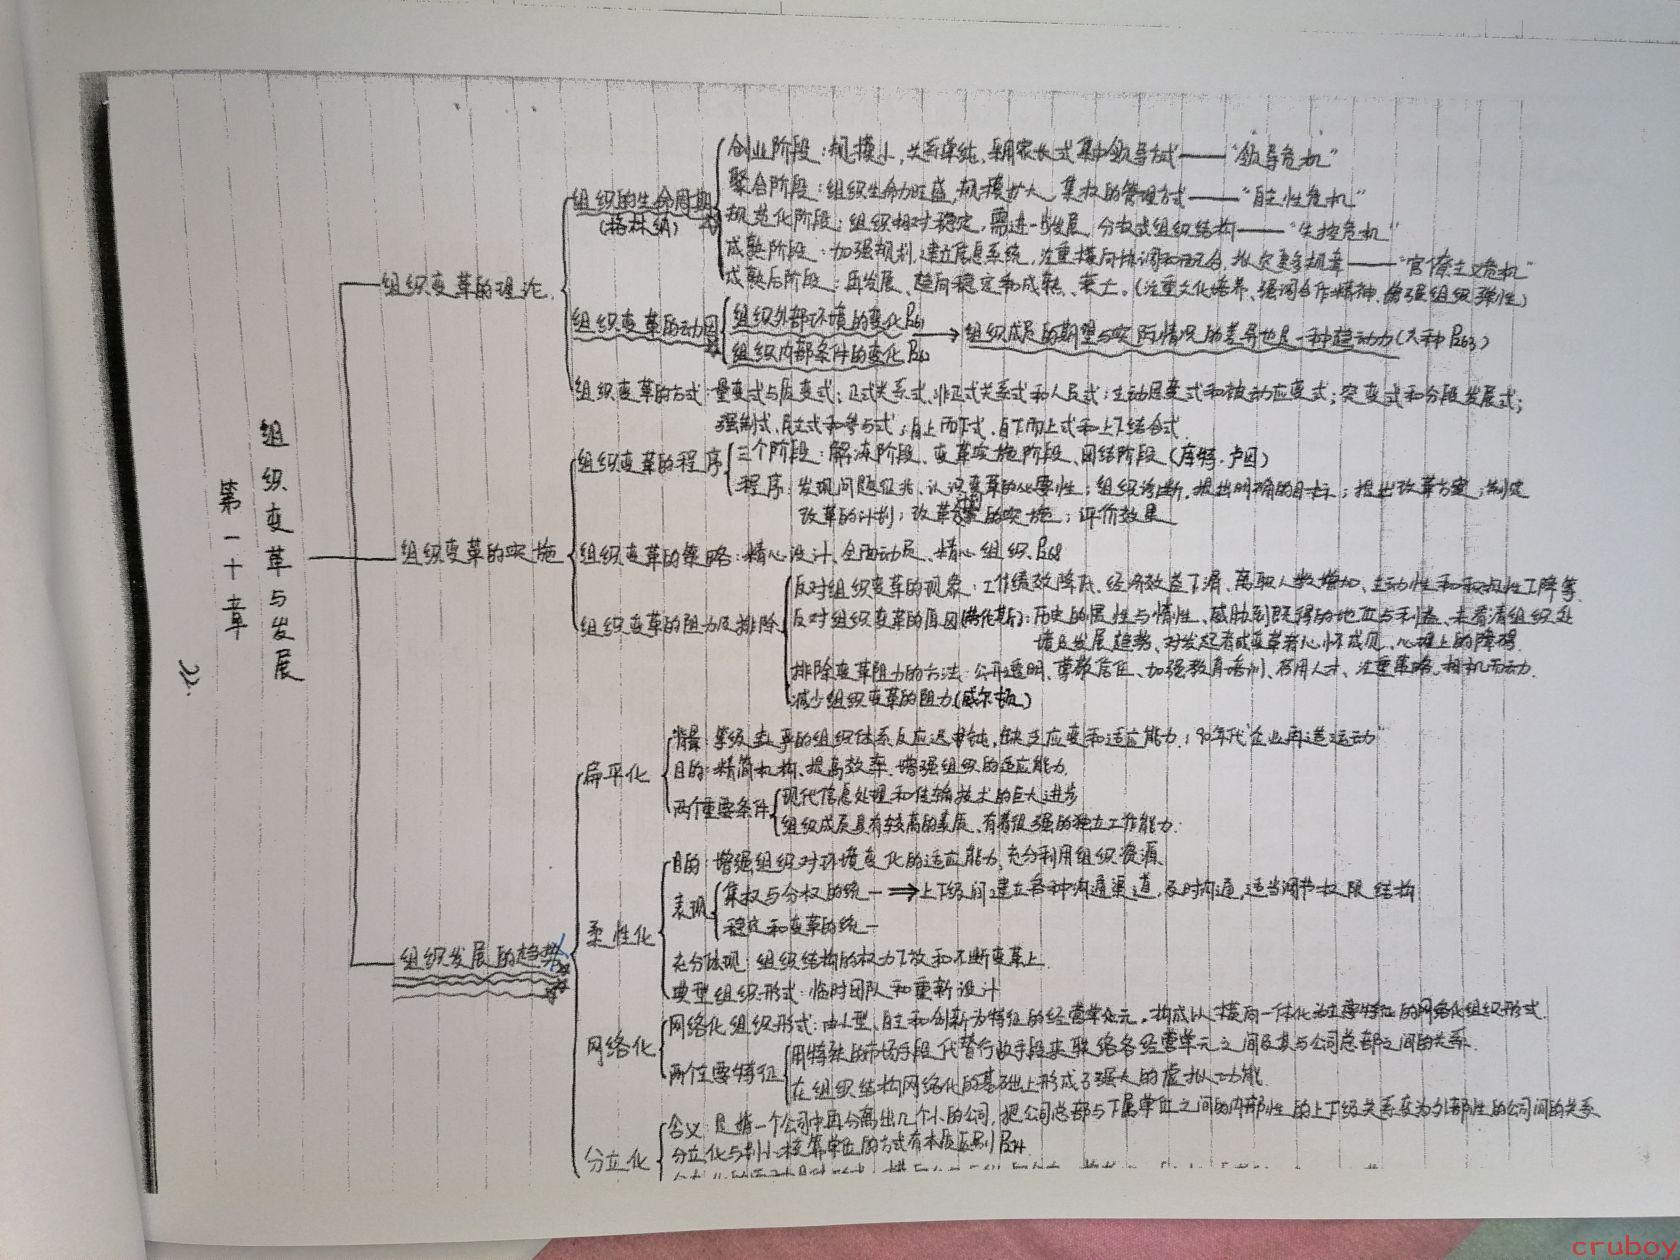 第一十章
组织变革与发展
22.
组织变革的理论
组织的生命周期
(格林纳)
创业阶段：规模小，关系单纯，采用家长式集中领导方式——“领导危机”
聚合阶段：组织生命力旺盛，规模扩大，集权的管理方式——“自主性危机”
规范化阶段：组织相对稳定，需进一步发展，分权式组织结构——“失控危机”
成熟阶段：加强规划，建立信息系统，注重横向协调和配合，拟定更多规章——“官僚主义危机”
成熟后阶段：再发展、趋向稳定和成熟、衰亡。(注重文化培养、强调合作精神、增强组织弹性)
组织变革的动因
组织外部环境的变化 P261
组织内部条件的变化 P262
组织成员的期望与实际情况的差异也是一种趋动力(六种P263)
组织变革的方式：量变式与质变式；正式关系式、非正式关系式和人员式；主动思变式和被动应变式；突变式和分段发展式；
强制式、民主式和参与式；自上而下式、自下而上式和上下结合式
组织变革的实施
组织变革的程序
三个阶段：解冻阶段、变革实施阶段、固结阶段(库特·卢因)
程序：发现问题征兆、认识变革的必要性；组织诊断，提出明确的目标；提出改革方案；制定
改革的计划；改革的实施；评价效果
组织变革的策略：精心设计、全面动员、精心组织、P268
组织变革的阻力及排除
反对组织变革的现象：工作绩效降低、经济效益下滑、离职人数增加、主动性和积极性下降等.
反对组织变革的原因：历史的惯性与惰性、威胁到既得的地位与利益、未看清组织处
境及发展趋势、对发起者或变革者心怀成见、心理上的障碍.
排除变革阻力的方法：公开透明、尊敬信任、加强教育培训、启用人才、注重策略、相机而动.
减少组织变革的阻力(威尔顿)
组织发展的趋势
扁平化
背景：等级森严的组织体系反应迟钝，缺乏应变和适应能力；90年代“企业再造运动”
目的：精简机构、提高效率、增强组织的适应能力.
两个重要条件
现代信息处理和传输技术的巨大进步
组织成员具有较高的素质、有着很强的独立工作能力.
柔性化
目的：增强组织对环境变化的适应能力，充分利用组织资源
表现
集权与分权的统一⇒上下级间建立各种沟通渠道，及时沟通，适当调节权限结构
稳定和变革的统一
充分体现：组织结构的权力下放和不断变革上.
典型组织形式：临时团队和重新设计
网络化
网络化组织形式：由小型、自主和创新为特征的经营单元，构成以横向一体化为主要特征的网络化组织形式.
两个重要特征
用特殊的市场手段代替行政手段来联络各经营单元之间及其与公司总部之间的关系.
在组织结构网络化的基础上形成了强大的虚拟功能
分立化
含义：是指一个公司中再分离出几个小的公司，把公司总部与下属单位之间的内部性的上下级关系变为外部性的公司间的关系
分立化与划小核算单位的方式有本质区别 P274
cruboy